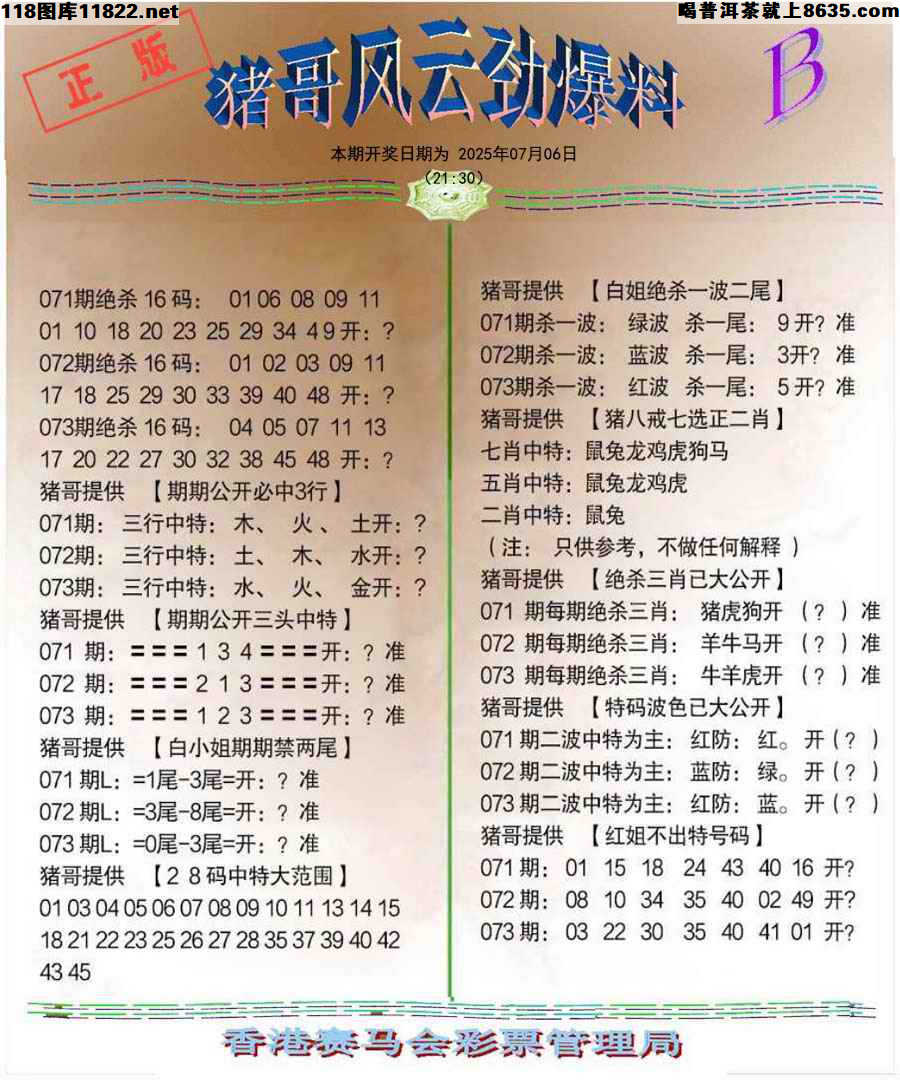 118图库11822.net
喝普洱茶就上8635.com
正版
猪哥风云劲爆料
B
本期开奖日期为 2025年07月06日
(21:30)
071期绝杀16码： 01 06 08 09 11
01 10 18 20 23 25 29 34 49开：?
072期绝杀16码： 01 02 03 09 11
17 18 25 29 30 33 39 40 48 开：?
073期绝杀16码： 04 05 07 11 13
17 20 22 27 30 32 38 45 48 开：?
猪哥提供 【期期公开必中3行】
071期：三行中特：木、 火、 土开：?
072期：三行中特：土、 木、 水开：?
073期：三行中特：水、 火、 金开：?
猪哥提供 【期期公开三头中特】
071 期：===134===开：? 准
072 期：===213===开：? 准
073 期：===123===开：? 准
猪哥提供 【白小姐期期禁两尾】
071期L：=1尾-3尾=开：? 准
072期L：=3尾-8尾=开：? 准
073期L：=0尾-3尾=开：? 准
猪哥提供 【28码中特大范围】
01 03 04 05 06 07 08 09 10 11 13 14 15
18 21 22 23 25 26 27 28 35 37 39 40 42
43 45
猪哥提供 【白姐绝杀一波二尾】
071期杀一波： 绿波 杀一尾： 9开? 准
072期杀一波： 蓝波 杀一尾： 3开? 准
073期杀一波： 红波 杀一尾： 5开? 准
猪哥提供 【猪八戒七选正二肖】
七肖中特：鼠兔龙鸡虎狗马
五肖中特：鼠兔龙鸡虎
二肖中特：鼠兔
（注： 只供参考，不做任何解释）
猪哥提供 【绝杀三肖已大公开】
071 期每期绝杀三肖： 猪虎狗开 （?）准
072 期每期绝杀三肖： 羊牛马开 （?）准
073 期每期绝杀三肖： 牛羊虎开 （?）准
猪哥提供 【特码波色已大公开】
071期二波中特为主：红防：红。开(?)
072期二波中特为主：蓝防：绿。开(?)
073期二波中特为主：红防：蓝。开(?)
猪哥提供 【红姐不出特号码】
071期：01 15 18 24 43 40 16 开?
072期：08 10 34 35 40 02 49 开?
073期：03 22 30 35 40 41 01 开?
香港赛马会彩票管理局